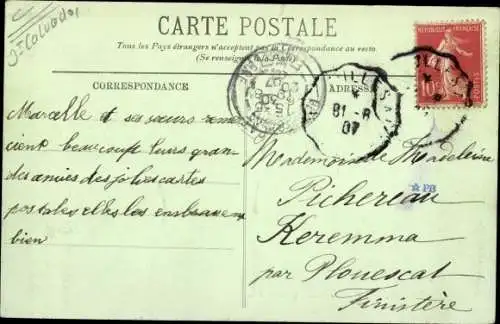 Calvados
CARTE POSTALE
Tous les Pays étrangers n'acceptent pas la Correspondance au verso.
(Se renseigner à la Poste)
CORRESPONDANCE
ADRESSE
RÉPUBLIQUE FRANÇAISE
10c
POSTES
81-8
07
Marcelle et ses sœurs remer
cient beaucoup leurs gran
des amies des jolies cartes
postales elles les embrassent
bien
Mademoiselle Madeleine
Pichereau
PB
Keremma
par Plouescat
Finistère